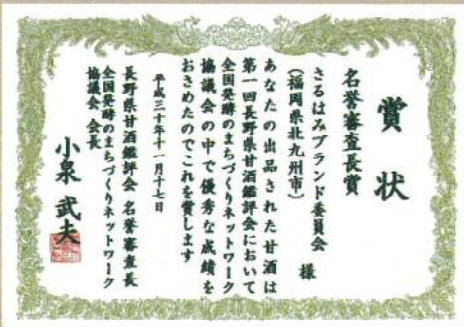 賞状
名誉審査長賞
さるはみブランド委員会
(福岡県北九州市)
様
あなたの出品された甘酒は
第一回長野県甘酒鑑評会において
全国発酵のまちづくりネットワーク
協議会の中で優秀な成績を
おさめたのでこれを賞します
平成三十年十一月十七日
長野県甘酒鑑評会 名誉審査長
全国発酵のまちづくりネットワーク
協議会 会長
小泉 武夫